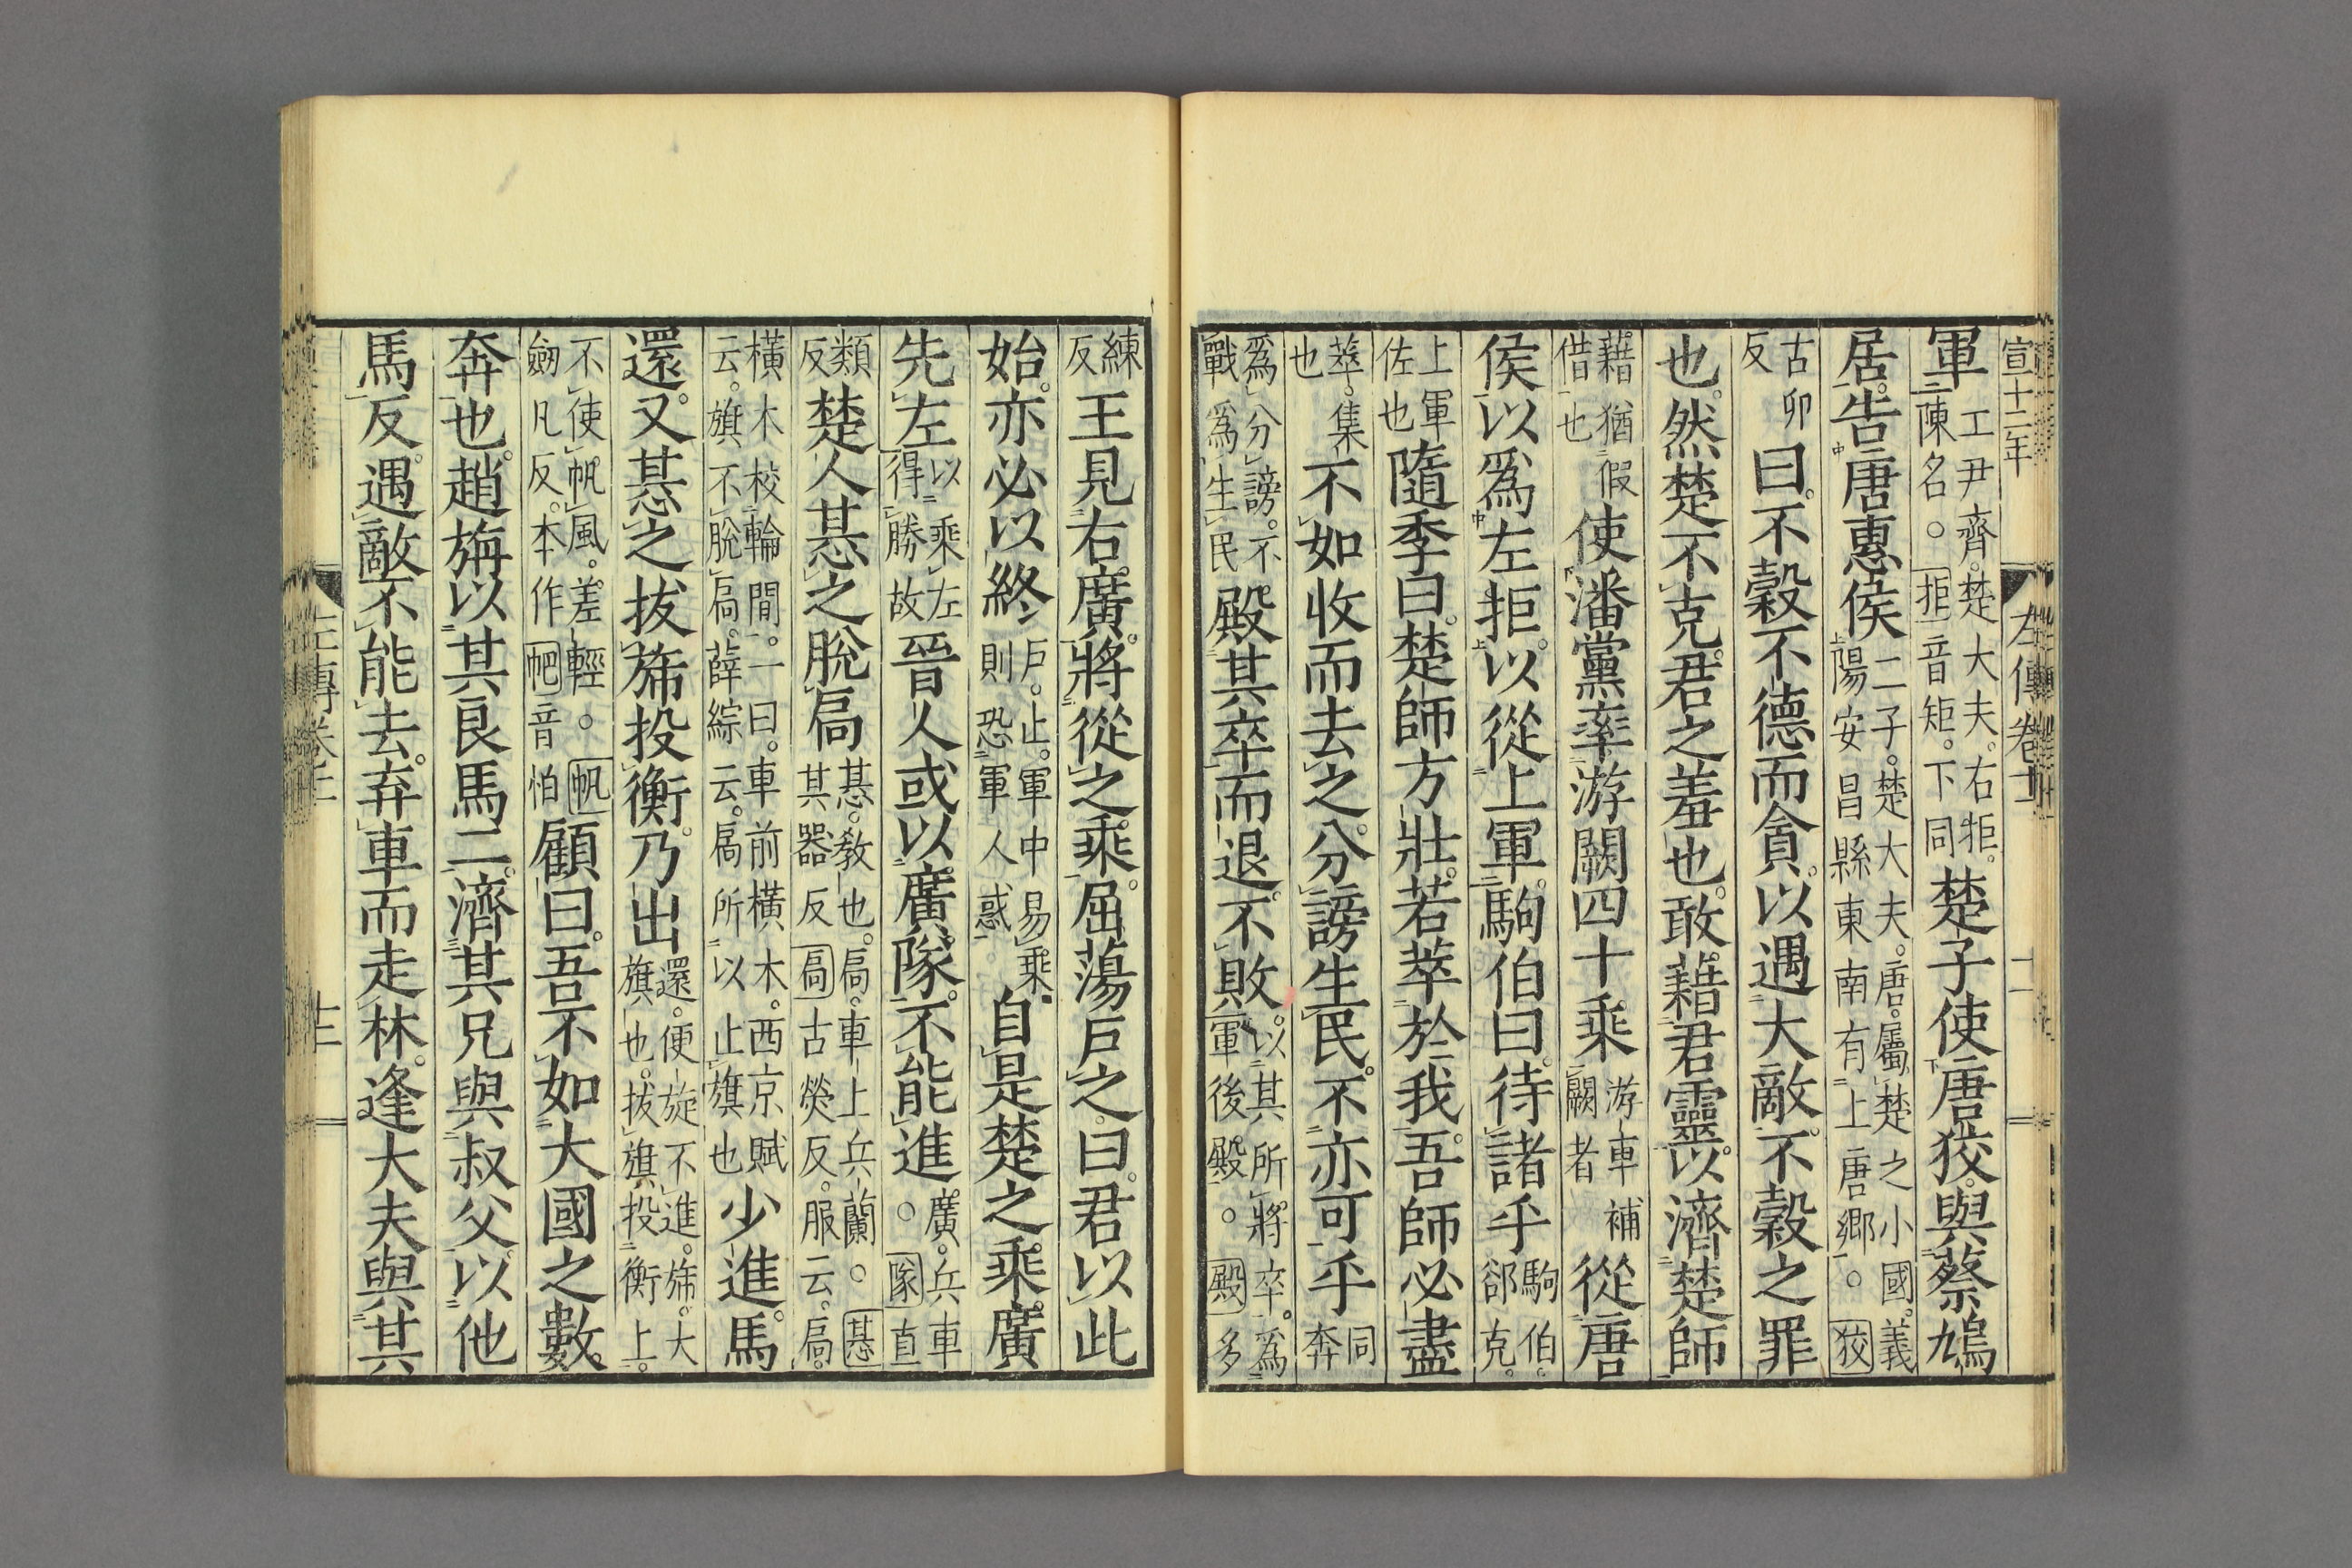 宣十二年
左傳卷十一
軍工尹齊楚大夫右拒陳名○拒音矩下同楚子使唐狡與蔡鳩
居告唐惠侯二子楚大夫唐屬楚之小國義陽安昌縣東南有上唐鄉○狡
古卯反曰不穀不德而貪以遇大敵不穀之罪
也然楚不克君之羞也敢藉君靈以濟楚師
藉猶假借也使潘黨率游闕四十乘游車補闕者從唐
侯以爲左拒以從上軍駒伯曰待諸乎駒伯郤克
上軍佐也隨季曰楚師方壯若萃於我吾師必盡
萃集也不如收而去之分謗生民不亦可乎同奔
爲分謗不戰爲生民殿其卒而退不敗以其所將卒爲軍後殿○殿多
練反王見右廣將從之乘屈蕩戶之曰君以此
始亦必以終戶止軍中易乘則恐軍人惑自是楚之乘廣
先左以乘左得勝故晉人或以廣隊不能進○廣兵車隊直
類反楚人惎之脫扃惎教也扃車上兵蘭○惎其器反扃古熒反服云扃
橫木校輪間一曰車前橫木西京賦云旗不脫扃薛綜云扃所以止旗也少進馬
還又惎之拔旆投衡乃出還便旋不進旆大旗也拔旗投衡上
不使帆風差輕○帆劒凡反本作帊音怕顧曰吾不如大國之數
奔也趙旃以其良馬二濟其兄與叔父以他
馬反遇敵不能去弃車而走林逢大夫與其